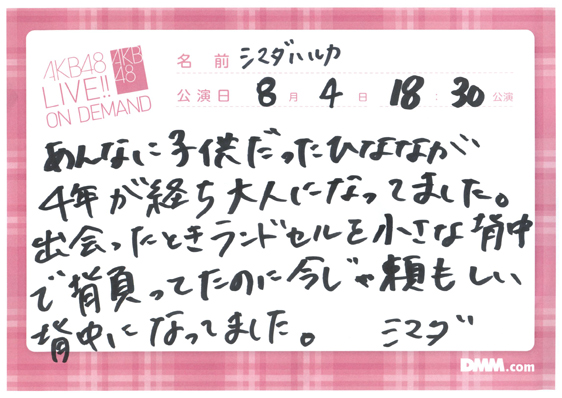 AKB48
LIVE!!
ON DEMAND
AKB
48
名前 シマダハルカ
公演日 8月 4日 18:30公演
あんなに子供だったひななが
4年が経ち大人になってました。
出会ったときランドセルを小さな背中
で背負ってたのに今じゃ頼もしい
背中になってました。 シマダ
DMM.com